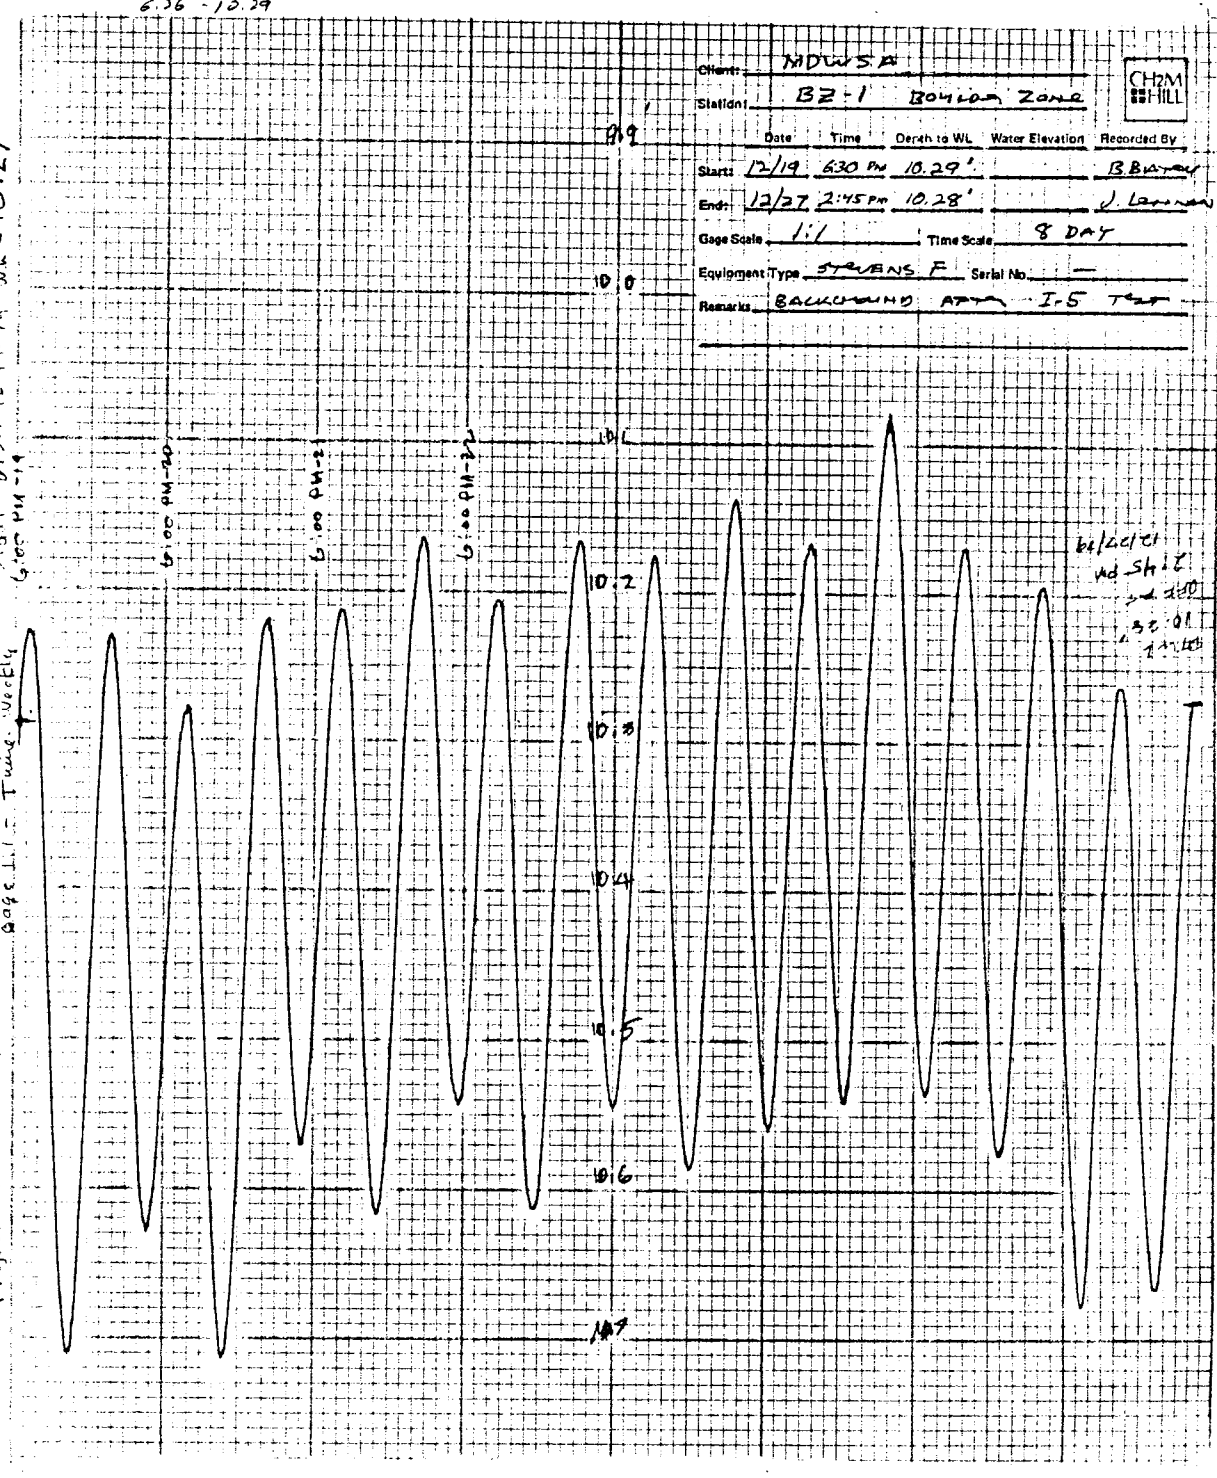 6.26 - 10.29
Client: MDWSA
CH2M
HILL
Station: BZ-1 Boulder Zone
Date Time Depth to WL Water Elevation Recorded By
Start: 12/19 6:30 PM 10.29'
End: 12/27 2:45 PM 10.28'
Gage Scale 1:1 Time Scale 8 DAY
Equipment Type STEVENS F Serial No. —
Remarks BACKGROUND AFTER I-5 TEST
9.9
10.0
10.1
10.2
10.3
10.4
10.5
10.6
10.7
6:00 PM-19
6:00 PM-20
6:00 PM-21
6:00 PM-22
Gage 1:1 - Time: Weekly
2:45 PM
10.28'